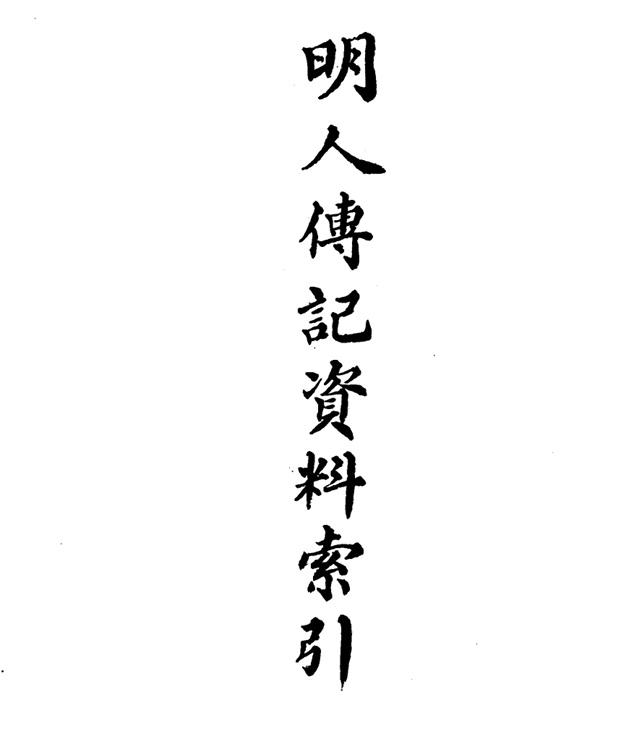 明人傳記資料索引